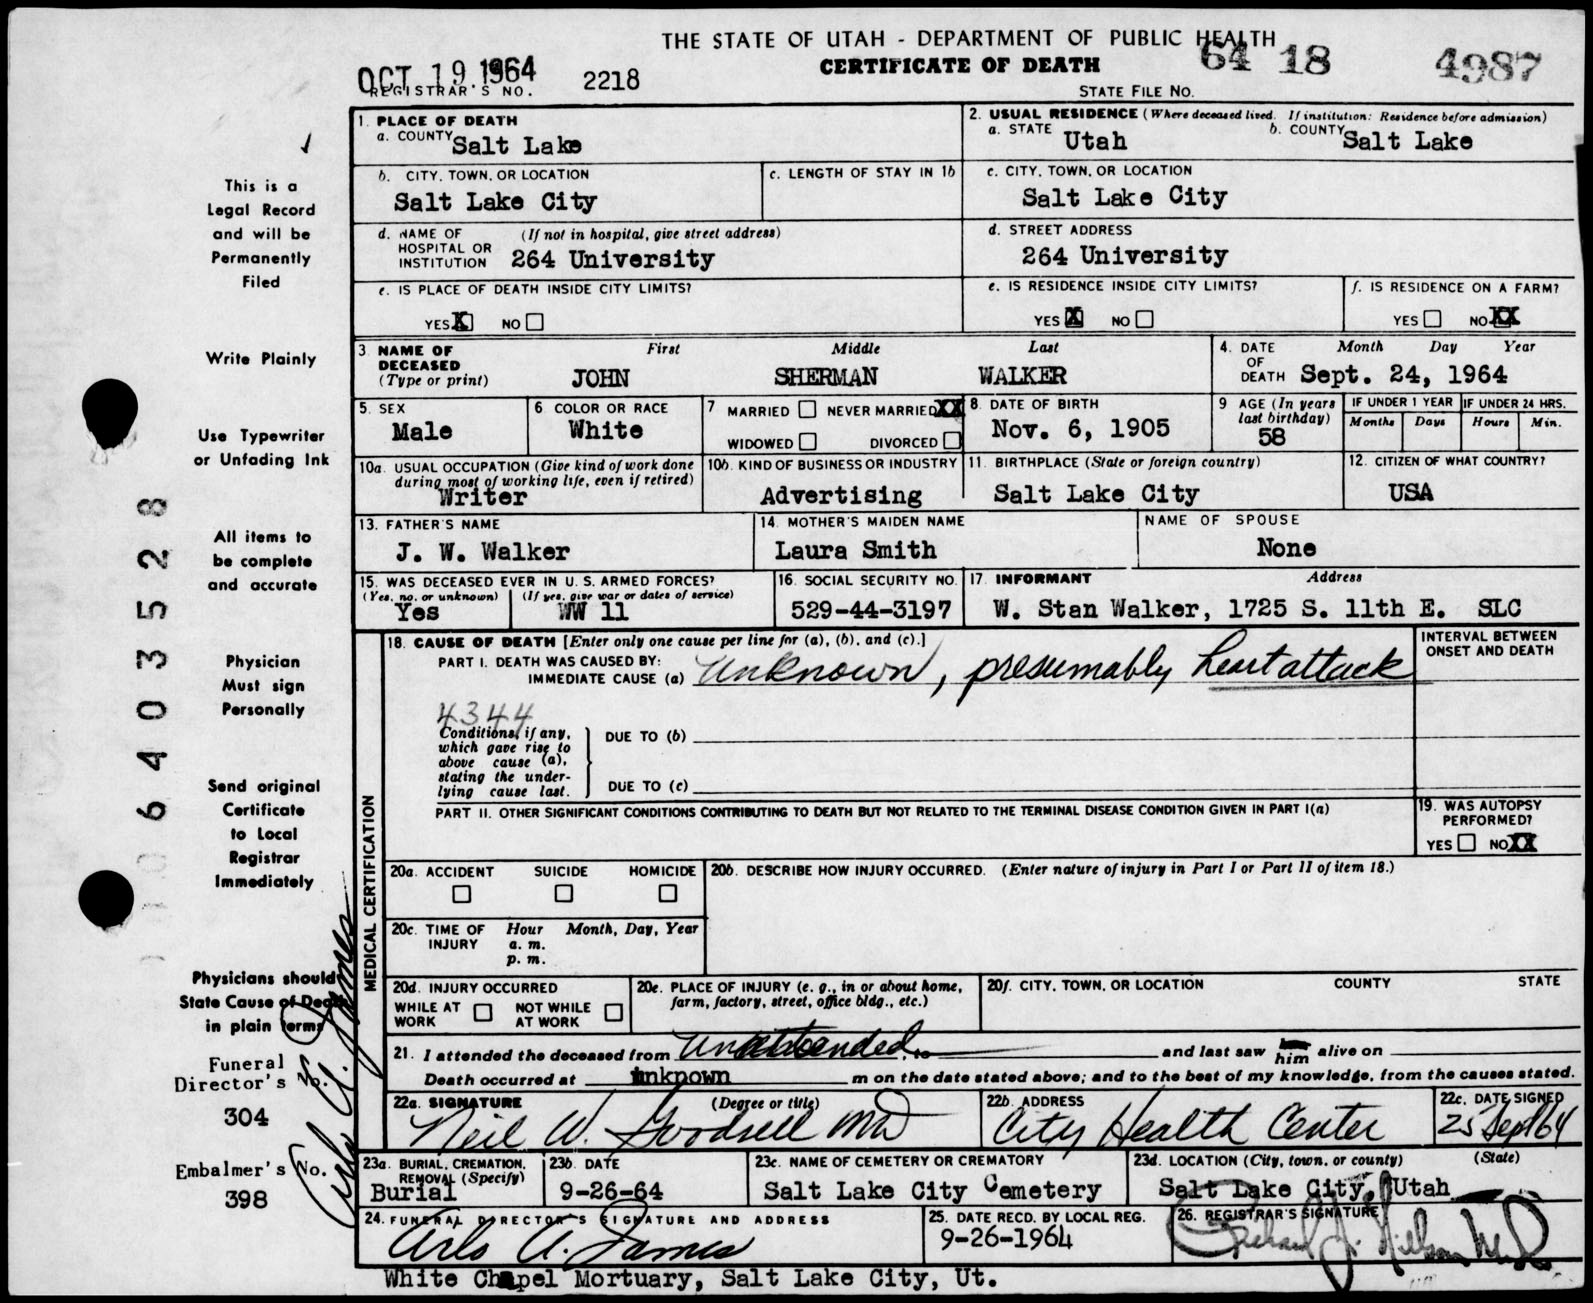 THE STATE OF UTAH - DEPARTMENT OF PUBLIC HEALTH
CERTIFICATE OF DEATH
64 18 4987
OCT 19 1964
REGISTRAR'S NO. 2218
STATE FILE NO.
1. PLACE OF DEATH
a. COUNTY Salt Lake
2. USUAL RESIDENCE (Where deceased lived. If institution: Residence before admission)
a. STATE Utah b. COUNTY Salt Lake
b. CITY, TOWN, OR LOCATION
Salt Lake City
c. LENGTH OF STAY IN 1b
c. CITY, TOWN, OR LOCATION
Salt Lake City
d. NAME OF HOSPITAL OR INSTITUTION (If not in hospital, give street address)
264 University
d. STREET ADDRESS
264 University
e. IS PLACE OF DEATH INSIDE CITY LIMITS?
YES X NO
e. IS RESIDENCE INSIDE CITY LIMITS?
YES X NO
f. IS RESIDENCE ON A FARM?
YES NO XX
3. NAME OF DECEASED (Type or print)
First Middle Last
JOHN SHERMAN WALKER
4. DATE OF DEATH Month Day Year
Sept. 24, 1964
5. SEX
Male
6. COLOR OR RACE
White
7 MARRIED NEVER MARRIED XX
WIDOWED DIVORCED
8. DATE OF BIRTH
Nov. 6, 1905
9 AGE (In years last birthday)
58
IF UNDER 1 YEAR
Months Days
IF UNDER 24 HRS.
Hours Min.
10a. USUAL OCCUPATION (Give kind of work done during most of working life, even if retired)
Writer
10b. KIND OF BUSINESS OR INDUSTRY
Advertising
11. BIRTHPLACE (State or foreign country)
Salt Lake City
12. CITIZEN OF WHAT COUNTRY?
USA
13. FATHER'S NAME
J. W. Walker
14. MOTHER'S MAIDEN NAME
Laura Smith
NAME OF SPOUSE
None
15. WAS DECEASED EVER IN U.S. ARMED FORCES?
(Yes, no, or unknown) (If yes, give war or dates of service)
Yes WW 11
16. SOCIAL SECURITY NO.
529-44-3197
17. INFORMANT Address
W. Stan Walker, 1725 S. 11th E. SLC
MEDICAL CERTIFICATION
18. CAUSE OF DEATH [Enter only one cause per line for (a), (b), and (c).]
PART I. DEATH WAS CAUSED BY:
IMMEDIATE CAUSE (a) Unknown, presumably heart attack
INTERVAL BETWEEN ONSET AND DEATH
4344
Conditions, if any, which gave rise to above cause (a), stating the underlying cause last.
DUE TO (b)
DUE TO (c)
PART II. OTHER SIGNIFICANT CONDITIONS CONTRIBUTING TO DEATH BUT NOT RELATED TO THE TERMINAL DISEASE CONDITION GIVEN IN PART I(a)
19. WAS AUTOPSY PERFORMED?
YES NO XX
20a. ACCIDENT SUICIDE HOMICIDE
20b. DESCRIBE HOW INJURY OCCURRED. (Enter nature of injury in Part I or Part II of item 18.)
20c. TIME OF INJURY Hour Month, Day, Year
a. m.
p. m.
20d. INJURY OCCURRED
WHILE AT WORK NOT WHILE AT WORK
20e. PLACE OF INJURY (e. g., in or about home, farm, factory, street, office bldg., etc.)
20f. CITY, TOWN, OR LOCATION COUNTY STATE
21. I attended the deceased from Unattended, to and last saw him alive on
Death occurred at unknown m on the date stated above; and to the best of my knowledge, from the causes stated.
22a. SIGNATURE (Degree or title)
Neil W. Goodsell MD
22b. ADDRESS
City Health Center
22c. DATE SIGNED
25 Sept 64
23a. BURIAL, CREMATION, REMOVAL (Specify)
Burial
23b. DATE
9-26-64
23c. NAME OF CEMETERY OR CREMATORY
Salt Lake City Cemetery
23d. LOCATION (City, town, or county) (State)
Salt Lake City, Utah
24. FUNERAL DIRECTOR'S SIGNATURE AND ADDRESS
Arlo A. James
White Chapel Mortuary, Salt Lake City, Ut.
25. DATE RECD. BY LOCAL REG.
9-26-1964
26. REGISTRAR'S SIGNATURE
This is a
Legal Record
and will be
Permanently
Filed
Write Plainly
Use Typewriter
or Unfading Ink
All items to
be complete
and accurate
Physician
Must sign
Personally
Send original
Certificate
to Local
Registrar
Immediately
Physicians should
State Cause of Death
in plain terms
Funeral
Director's No.
304
Embalmer's No.
398
Arlo A. James
0640 3528